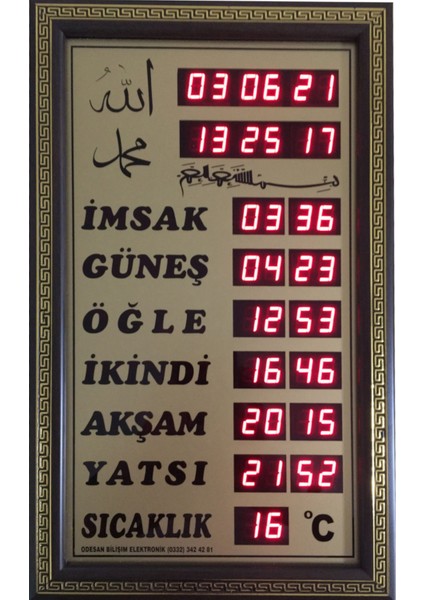 الله 03 06 21
محمد 13 25 17
İMSAK 03 36
GÜNEŞ 04 23
ÖĞLE 12 53
İKİNDİ 16 46
AKŞAM 20 15
YATSI 21 52
SICAKLIK 16 °C
ODESAN BİLİŞİM ELEKTRONİK (0332) 342 42 81